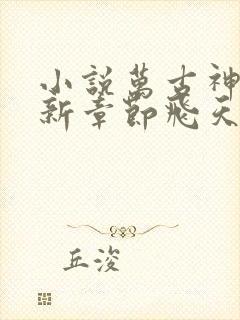 小說萬古神
新章節飛天
丘浚